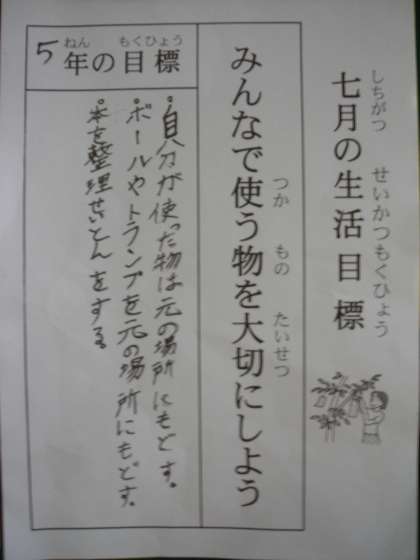 七月の生活目標
しちがつ せいかつもくひょう
みんなで使う物を大切にしよう
つか もの たいせつ
5年の目標
ねん もくひょう
・自分が使った物は元の場所にもどす。
・ボールやトランプを元の場所にもどす。
・本を整理せいとんをする。